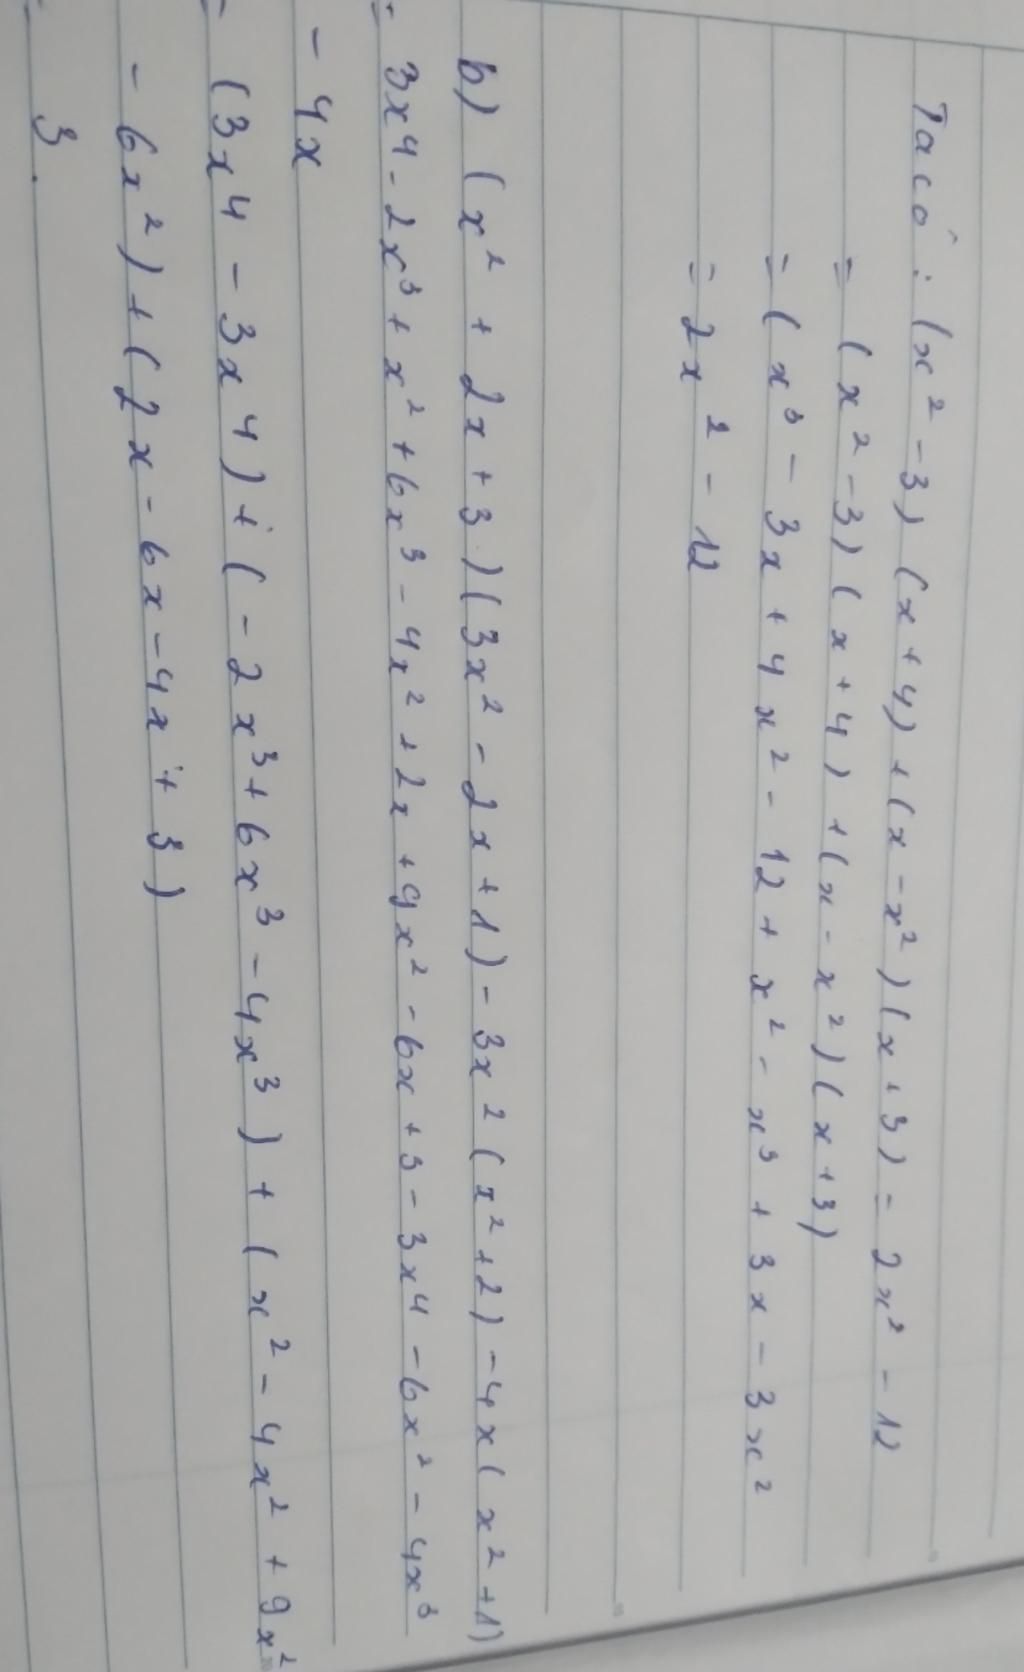 Ta có : (x² - 3) (x + 4) + (x - x²) (x + 3) = 2x² - 12
= (x² - 3) (x + 4) + (x - x²) (x + 3)
= (x³ - 3x + 4x² - 12 + x² - x³ + 3x - 3x²
= 2x² - 12
b) (x² + 2x + 3) (3x² - 2x + 1) - 3x² (x² + 2) - 4x (x² + 1)
= 3x⁴ - 2x³ + x² + 6x³ - 4x² + 2x + 9x² - 6x + 3 - 3x⁴ - 6x² - 4x³
- 4x
= (3x⁴ - 3x⁴) + (- 2x³ + 6x³ - 4x³) + (x² - 4x² + 9x²
- 6x²) + (2x - 6x - 4x + 3)
= 3.